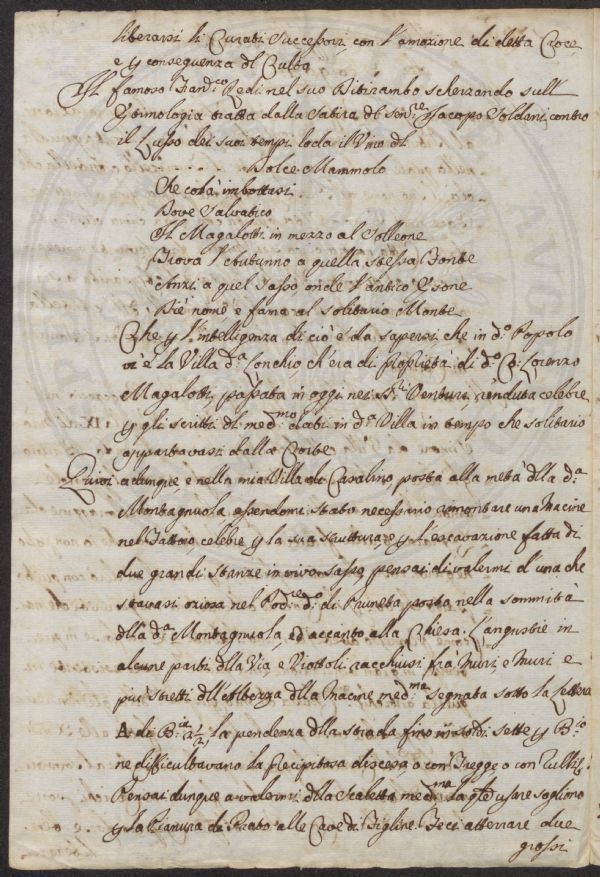 liberarsi li Curati Successori con l'amozione di detta Croce
e p conseguenza dl Culto
Il famoso Fran.co Redi nel suo Ditirambo scherzando sull'
Etimologia tratta dalla Satira dl Sen.re Jacopo Soldani contro
il Lusso dei suoi tempi loda il Vino di
Dolce Mammolo
Che colà imbottasi
Dove Salvatico
Il Magalotti in mezzo al Solleone
Trova l'Autunno a quella stessa Fonte
Anzi a quel Sasso, onde l'antico Esone
Diè nome e fama al solitario Monte
Che p l'intelligenza di ciò è da sapersi che in d.o Popolo
vi è la Villa d.a Lonchio ch'era di Proprietà di d.o Co: Lorenzo
Magalotti, passata in oggi nei SS.ri Venturi, renduta celebre
p gli scritti dl med.mo dati in d.a Villa in tempo che solitario
appartavasi dalla Corte
Quivi adunque, e nella mia Villa di Casalino, posta alla metà dlla d.a
Montagnuola, essendomi stato necessario rimontare una Macine
nel Fattoio, celebre p la sua struttura, e p l'escavazione fatta di
due grandi stanze in vivo sasso, pensai di valermi d'una che
stavasi oziosa nel Pod.re d.o di Pruneta posta nella sommità
dlla d.a Montagnuola, ed accanto alla Chiesa. L'angustie in
alcune parti dlla Via, e Viottoli racchiusi fra Muri, e Muri e
più stretti dll'Altezza dlla Macine med.ma segnata sotto la lettera
A di B.ia 2 1/2, la pendenza dlla strada fino in soldi sette p B.io
ne difficultavano la precipitosa discesa o con Tregge o con Curli
Pensai dunque a valermi dlla Scaletta med.ma la qle usare sogliono
p la Pianura di Prato alle Cave di Figline. Feci atterrare due
grossi